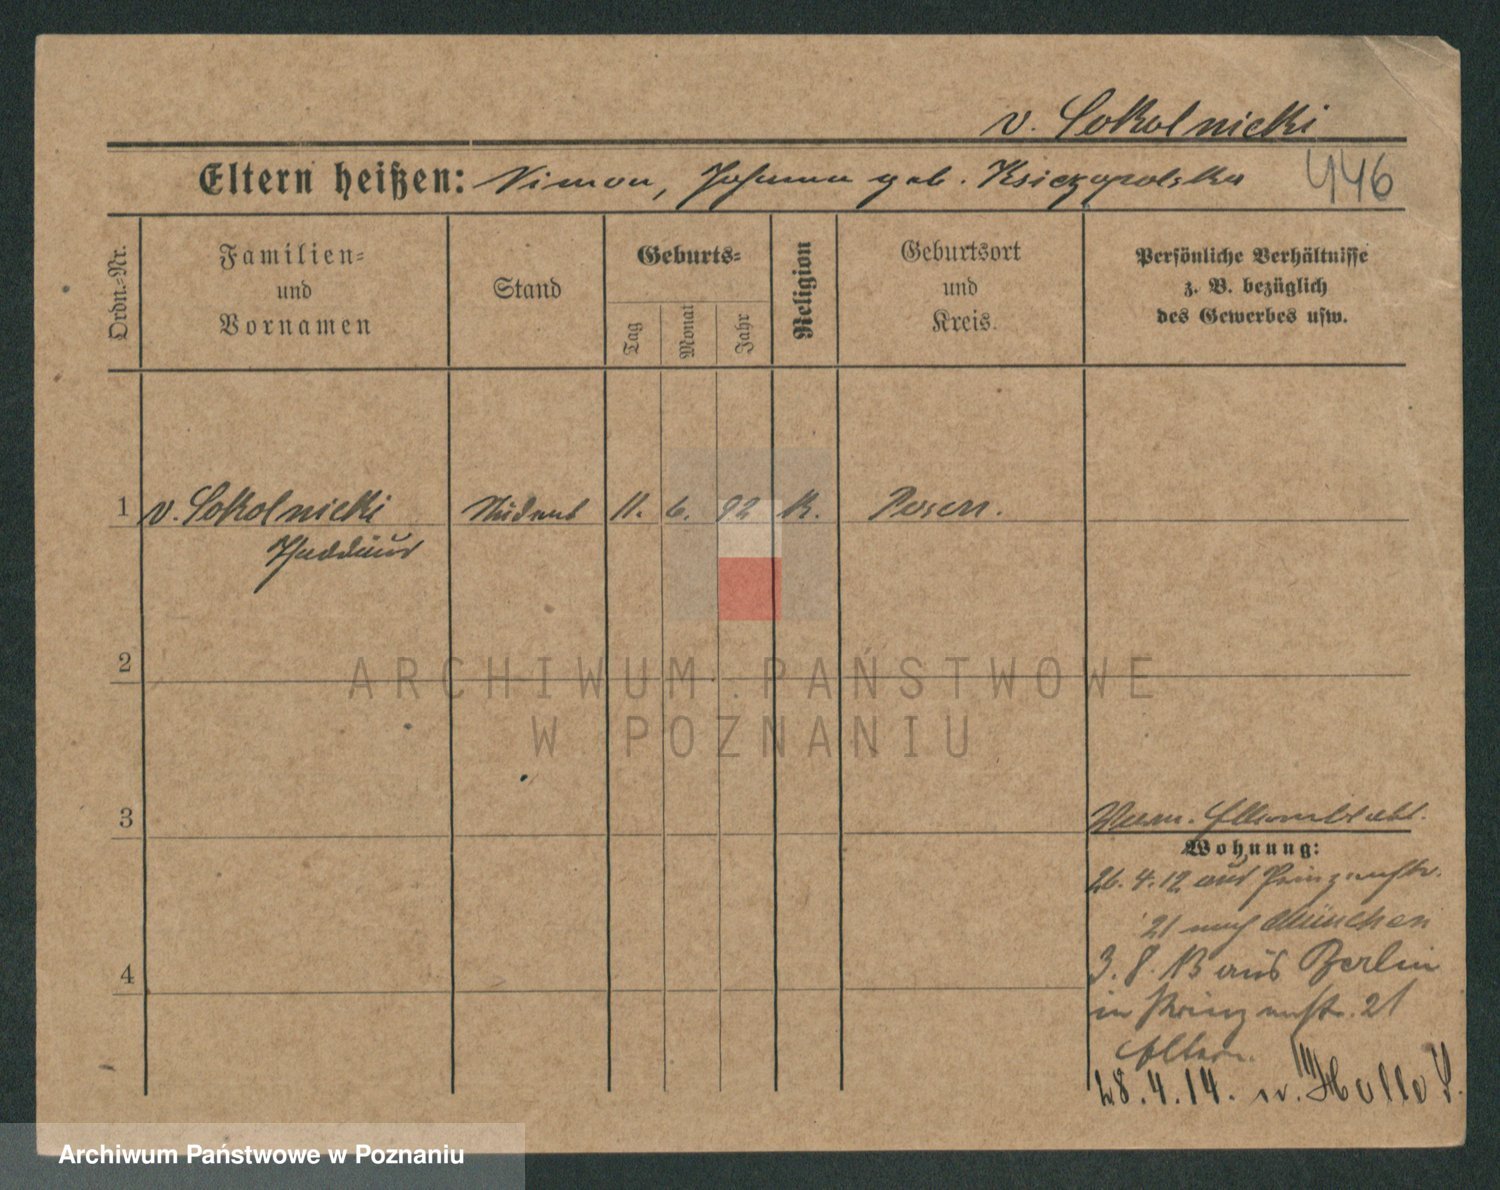 v. Sokolnicki
Eltern heißen: Simon, Johanna geb. Ksiezopolska
446
Ordn.-Nr.
Familien-
und
Vornamen
Stand
Geburts-
Tag
Monat
Jahr
Religion
Geburtsort
und
Kreis.
Persönliche Verhältnisse
z. B. bezüglich
des Gewerbes usw.
1 v. Sokolnicki Student 11. 6. 92 K. Posen.
Thaddäus
2
ARCHIWUM PAŃSTWOWE
W POZNANIU
3
Wohnung:
26. 4. 12 aus Prinzenstr.
21 nach München
4
3. 8. 13 aus Berlin
in Prinzenstr. 21
Eltern.
28. 4. 14. n. Halle S.
Archiwum Państwowe w Poznaniu